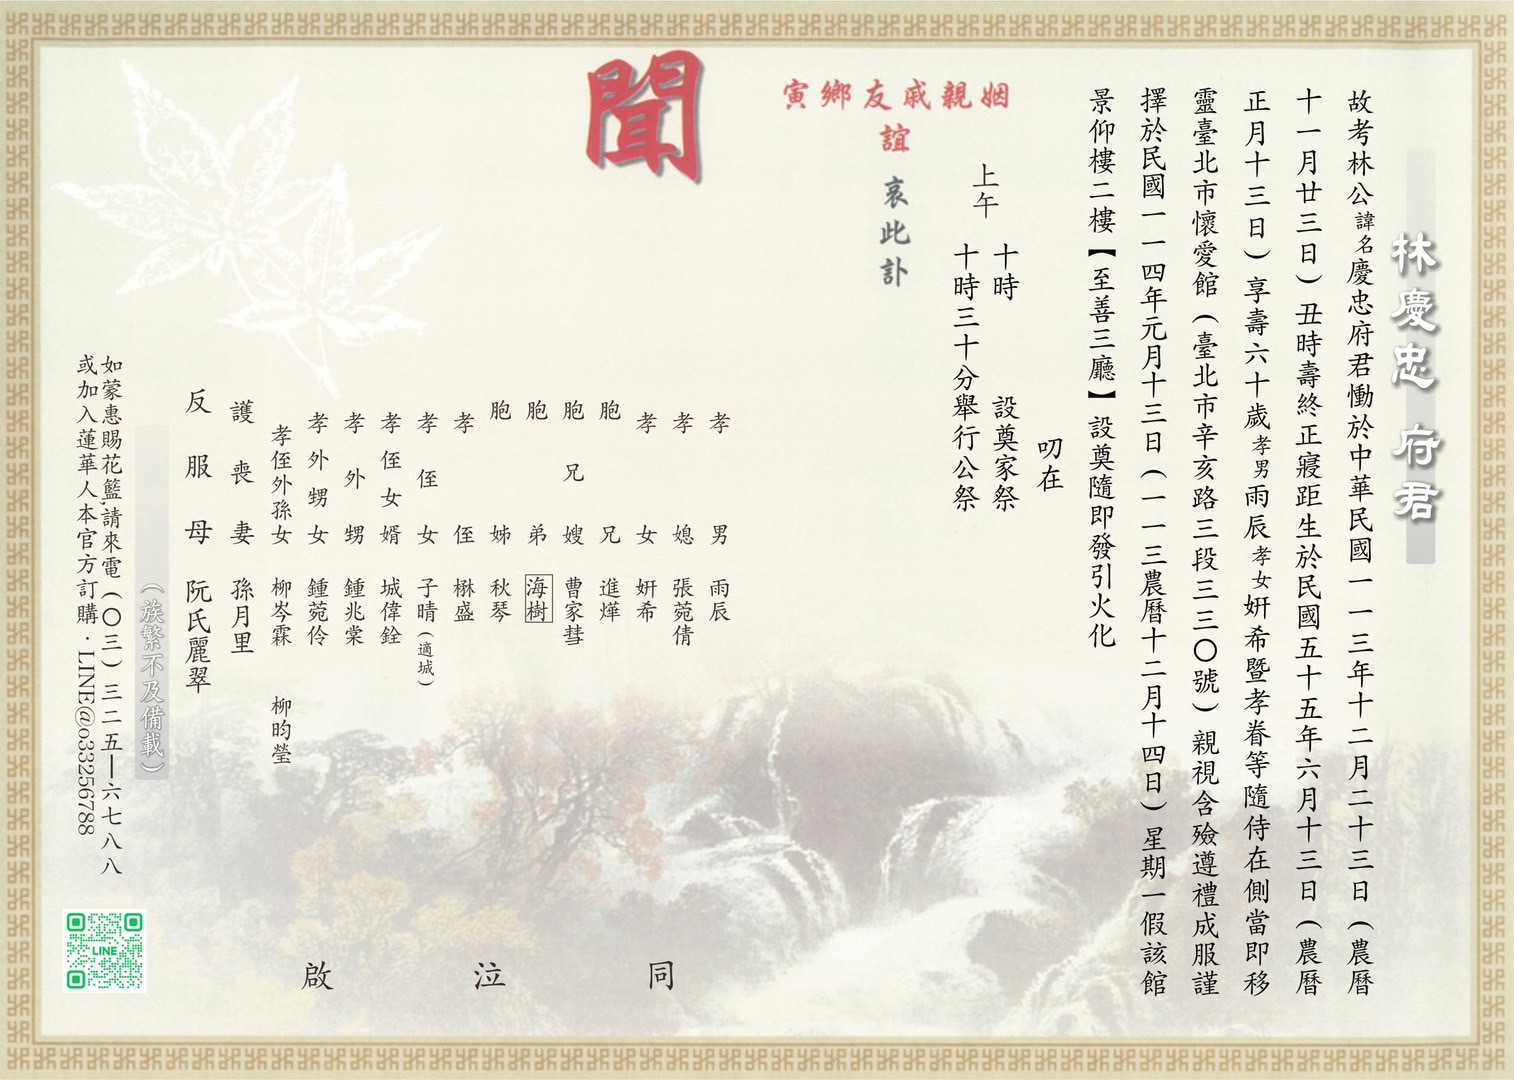 林慶忠 府君
故考林公諱名慶忠府君慟於中華民國一一三年十二月二十三日（農曆
十一月廿三日）丑時壽終正寢距生於民國五十五年六月十三日（農曆
正月十三日）享壽六十歲孝男雨辰孝女妍希暨孝眷等隨侍在側當即移
靈臺北市懷愛館（臺北市辛亥路三段三三〇號）親視含殮遵禮成服謹
擇於民國一一四年元月十三日（一一三農曆十二月十四日）星期一假該館
景仰樓二樓【至善三廳】設奠隨即發引火化
叨在
上午
十時 設奠家祭
十時三十分舉行公祭
寅鄉友戚親姻
誼
哀此訃
聞
孝男 雨辰
孝媳 張菀倩
孝女 妍希
胞兄 進燁
胞兄嫂 曹家彗
胞弟 海樹
胞姊 秋琴
孝侄 楙盛
孝侄女 子晴（適城）
孝侄女婿 城偉銓
孝外甥 鍾兆棠
孝外甥女 鍾菀伶
孝侄外孫女 柳岑霖 柳昀瑩
護喪妻 孫月里
反服母 阮氏麗翠
（族繁不及備載）
同泣啟
如蒙惠賜花籃,請來電（〇三）三二五—六七八八
或加入蓮華人本官方訂購．LINE@o33256788
LINE